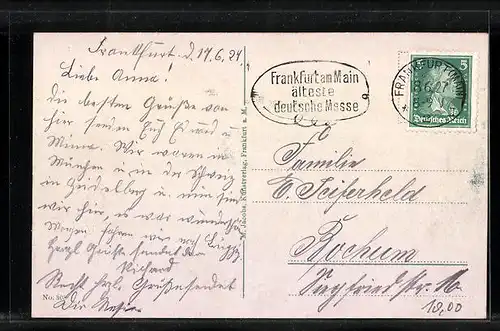 Frankfurt d. 14.6.27
Liebe Anna!
die besten Grüße von
hier senden Euch Eduard u
Minna. Wir waren in
München u in der Schweiz
in Heidelberg u nun sind
wir hier, es war wunderschön
Morgen fahren wir nach
Herzl Grüße sendet dir
Richard
Recht herzl. Grüße sendet
Die
No. 80
M. Jacobs, Kunstverlag, Frankfurt a. M.
Frankfurt am Main
älteste
deutsche Messe
FRANKFURT (MAIN)
5
Deutsches Reich
Familie
E. Seiferheld
Bochum
Siegfried Str.
10,00